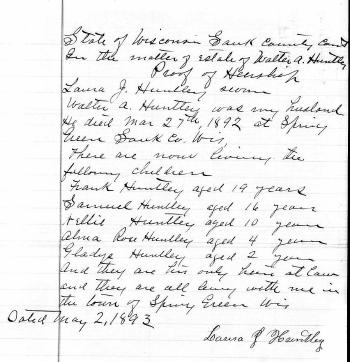 State of Wisconsin Sauk County Court
In the matter of estate of Walter A. Huntley
Proof of Heirship
Laura J. Huntley sworn
Walter A. Huntley was my husband
He died Mar 27th, 1892 at Spring
Green Sauk Co. Wis,
There are now living the
following children
Frank Huntley aged 19 years
Samuel Huntley aged 16 years
Nellie Huntley aged 10 years
Alma Rose Huntley aged 4 years
Gladys Huntley aged 2 years
And they are his only heirs at law
and they are all living with me in
the town of Spring Green Wis
Dated May 2, 1893
Laura J Huntley